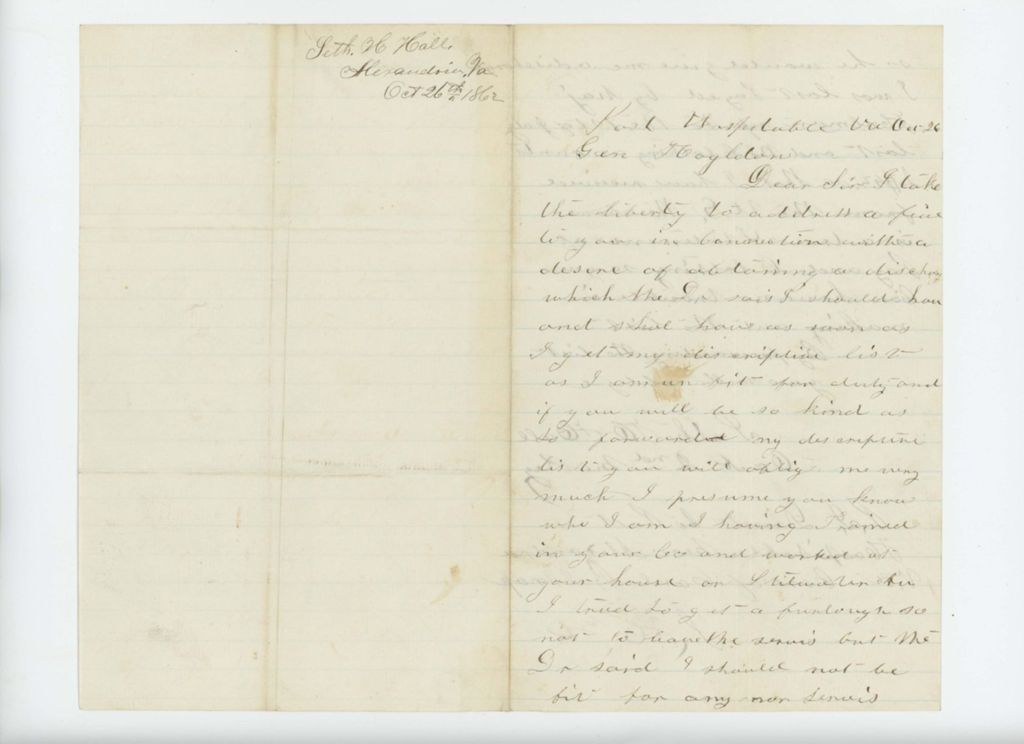 Seth. H Hall.
Alexandria, Va
Oct 26th 1862
Hospital Va Oct 26
Gen Hoydon
Dear Sir I take
the liberty to address a fiew
to you in Connection with a
desire of abtaining a discharg
which the Dr sais I should hav
and shal have as soon as
I get my discriptive list
as I am un fit for duty and
if you will be so kind as
to forward my descriptive
list you will oblig me very
much I presume you know
who I am I having Trained
in your Co and worked at
your house on Stilwater
I tried to get a furlough so
not to leave the servis but the
Dr said I should not be
fit for any mor servis